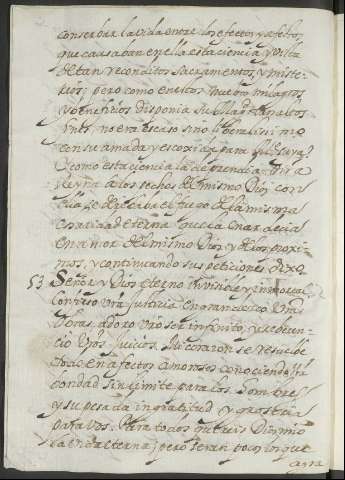 conserbar la vida entre los efectos y afectos,
que causaban en ella esta ciencia y vista
de tan reconditos sacramentos, y miste-
rios; pero como en estos nuevos milagros
y beneficios disponia su Magd. para los
no era escaso sino liberalissimo
con su amada y escoxida para su
Y como esta ciencia la deprendia
Reyna a los pechos del mismo Dios con
ella se el fuego de la misma
charidad eterna que la enardecia
en amor del mismo Dios y de los proxi-
mos, y continuando sus peticiones dixo.
53 Señor y Dios eterno invisible y inmortal
confieso vra justicia engrandezco vras
obras, adoro vro ser infinito, y reberen-
cio vros juicios. Mi corazon se resuelbe
todo en afectos amorosos conociendo vra
bondad sin limite para los hombres
y su pesada ingratitud y groseria
para vos. Para todos quereis Dios mio
la vida eterna; pero seran pocos los que